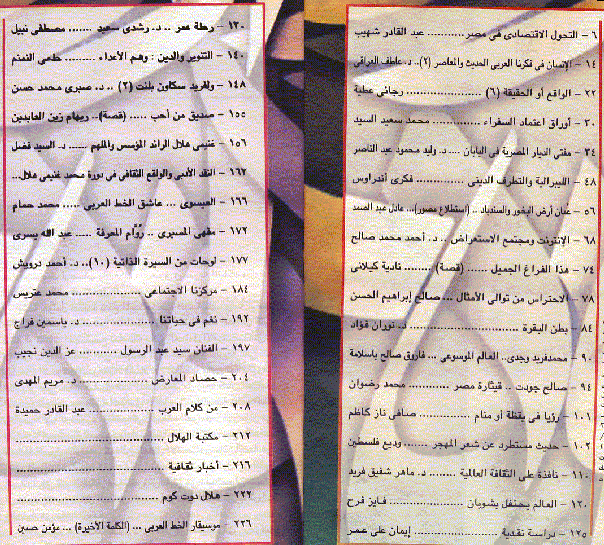 ٦ - التحول الاقتصادى فى مصر ............ عبد القادر شهيب
١٤ - الإنسان فى فكرنا العربى الحديث والمعاصر (٢).. د. عاطف العراقى
٢٢ - الواقع أو الحقيقة (٦) ............ رجائى عطية
٣٠ - أوراق اعتماد السفراء ............ محمد سعيد السيد
٣٤ - مفتى الديار المصرية فى اليابان .... د. وليد محمود عبد الناصر
٤٨ - الليبرالية والتطرف الدينى ............ فكرى أندراوس
٥٦ - عمان أرض البخور والسندباد .. (استطلاع مصور)... عادل عبد الصمد
٦٨ - الإنترنت ومجتمع الاستعراض .. د. أحمد محمد صالح
٧٤ - هذا الفراغ الجميل ...... (قصة) ........ نادية كيلانى
٧٨ - الاحتراس من توالى الأمثال ... صالح إبراهيم الحسن
٨٤ - بطن البقرة ............ د. نوران فؤاد
٩٠ - محمد فريد وجدى.. العالم الموسوعى ... فاروق صالح باسلامة
٩٤ - صالح جودت .. قيثارة مصر ............ محمد رضوان
١٠١ - رؤيا فى يقظة أو منام ............ صافى ناز كاظم
١٠٢ - حديث مستطرد عن شعر المهجر ....... وديع فلسطين
١١٠ - نافذة على الثقافة العالمية ........ د. ماهر شفيق فريد
١٢٠ - العالم يحتفل بشوبان ............ فايز فرح
١٢٥ - دراسة نقدية ............ إيمان على عمر
١٣٠ - رحلة عمر .. د. رشدى سعيد ....... مصطفى نبيل
١٤٠ - التنوير والدين : وهم الأعداء .......
١٤٨ - ولفريد سكاون بلنت (٢) .. د. صبرى محمد حسن
١٥٥ - صديق من أحب ..... (قصة).. ريهام زين العابدين
١٥٦ - غنيمى هلال الرائد المؤسس والملهم ...... د. السيد فضل
١٦٢ - النقد الأدبى والواقع الثقافى فى دورة محمد غنيمى هلال...
١٦٦ - العيسوى ... عاشق الخط العربى ..... محمد حمام
١٧٢ - مقهى المسيرى .. رُوَّام المعرفة ..... عبد الله يسرى
١٧٧ - لوحات من السيرة الذاتية (١٠).. د. أحمد درويش
١٨٤ - مركزنا الاجتماعى ............ محمد عتريس
١٩٢ - نغم فى حياتنا ............ د. ياسمين فراج
١٩٧ - الفنان سيد عبد الرسول .......... عز الدين نجيب
٢٠٤ - حصاد المعارض ............ د. مريم المهدى
٢٠٨ - من كلام العرب ............ عبد القادر حميدة
٢١٢ - مكتبة الهلال ............
٢١٦ - أخبار ثقافية ............
٢٢٢ - هلال دوت كوم ............
٢٢٦ - موسيقار الخط العربى ... (الكلمة الأخيرة) ... مؤمن حسين